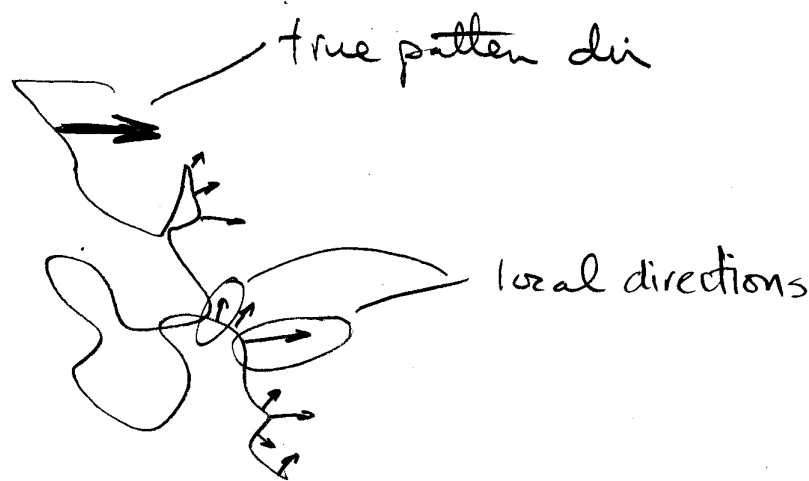 true patten dir
local directions